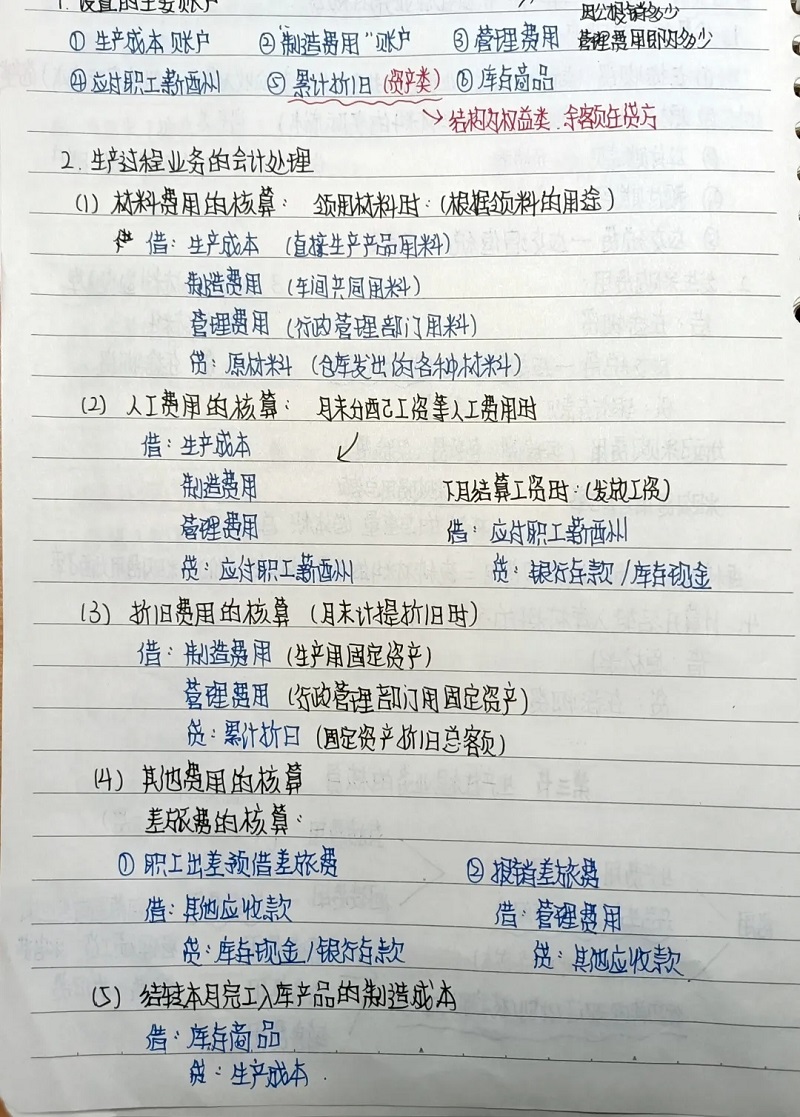 1. 设置的主要账户
因公报销多少
①生产成本账户 ②"制造费用"账户 ③管理费用 管理费用即为多少
④应付职工薪酬 ⑤累计折旧(资产类) ⑥库存商品
→结构为权益类.余额在贷方
2.生产过程业务的会计处理
(1) 材料费用的核算: 领用材料时:(根据领料的用途)
借:生产成本 (直接生产产品用料)
制造费用 (车间共同用料)
管理费用 (行政管理部门用料)
贷:原材料 (仓库发出的各种材料)
(2) 人工费用的核算: 月末分配工资等人工费用时
借:生产成本
制造费用 下月结算工资时:(发放工资)
管理费用 借:应付职工薪酬
贷:应付职工薪酬 贷:银行存款/库存现金
(3) 折旧费用的核算 (月末计提折旧时)
借:制造费用 (生产用固定资产)
管理费用 (行政管理部门用固定资产)
贷:累计折旧 (固定资产折旧总额)
(4) 其他费用的核算
差旅费的核算:
①职工出差预借差旅费 ②报销差旅费
借:其他应收款 借:管理费用
贷:库存现金/银行存款 贷:其他应收款
(5) 结转本月完工入库产品的制造成本
借:库存商品
贷:生产成本.